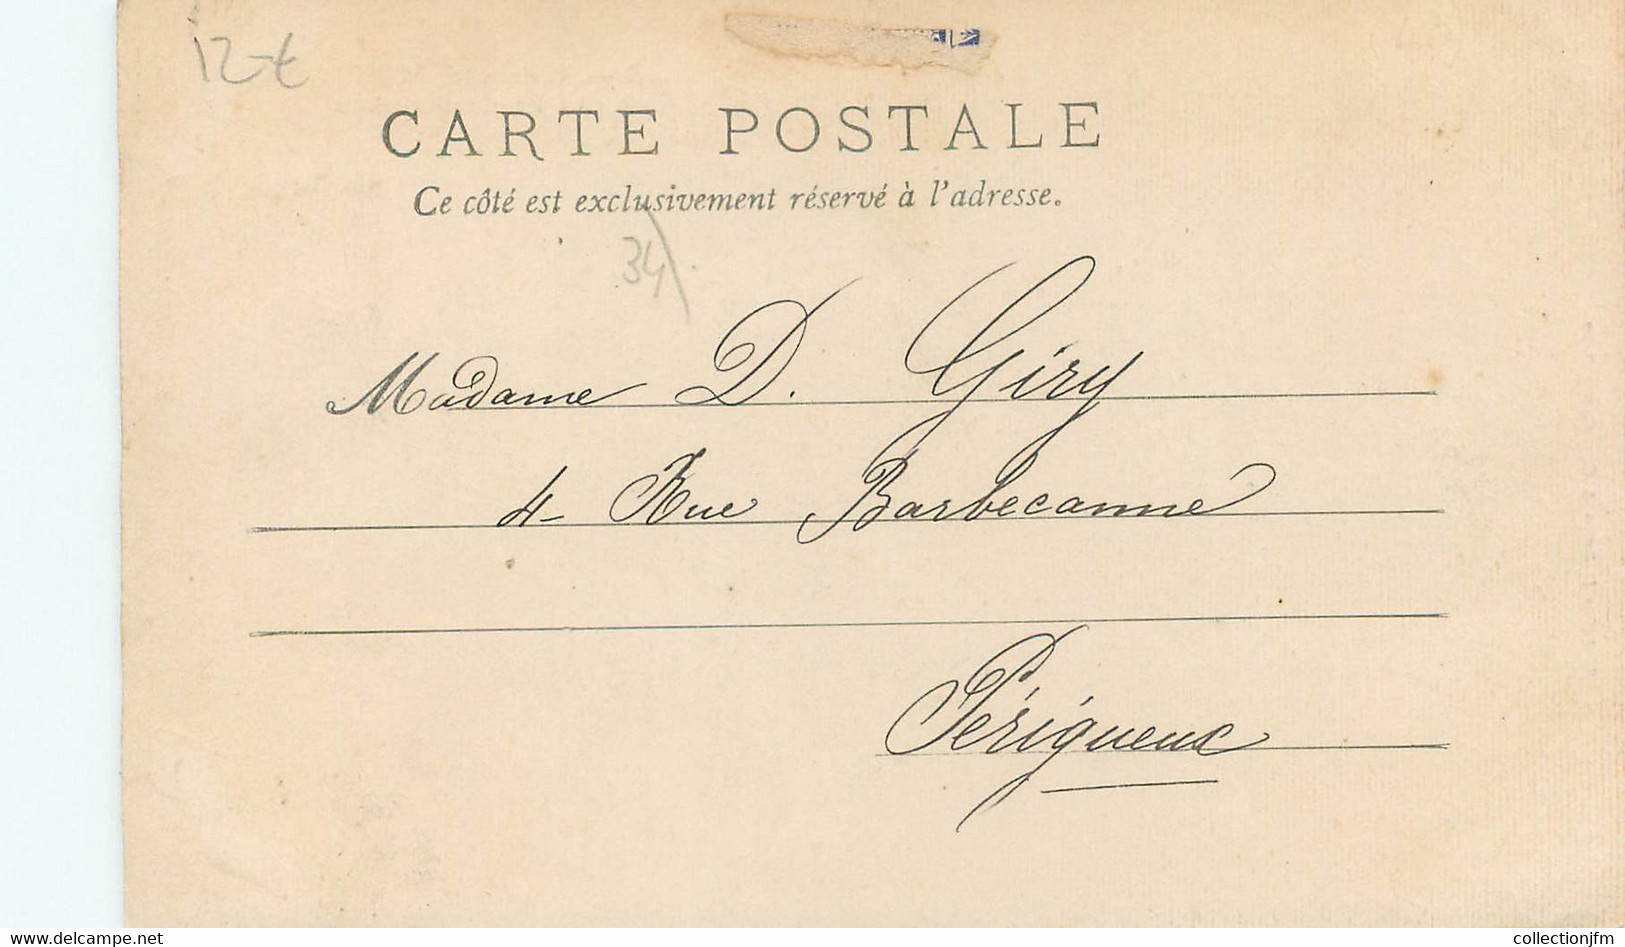 12 €
CARTE POSTALE
Ce côté est exclusivement réservé à l'adresse.
34
Madame D. Giry
4 - Rue Barbecanne
Périgueux
www.delcampe.net
collectionjfm